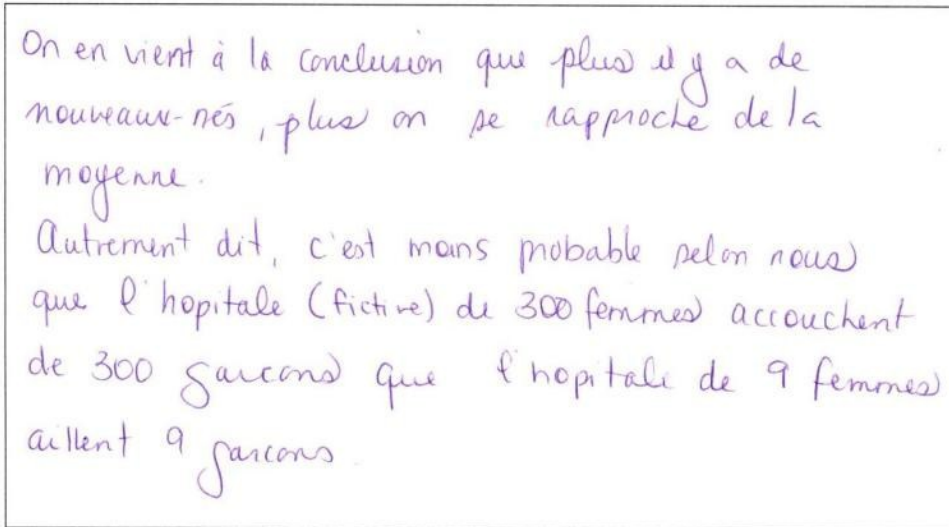 On en vient à la conclusion que plus il y a de
nouveaux-nés, plus on se rapproche de la
moyenne.
Autrement dit, c'est moins probable selon nous
que l'hopitale (fictive) de 300 femmes accouchent
de 300 garcons que l'hopitale de 9 femmes
aillent 9 garcons.